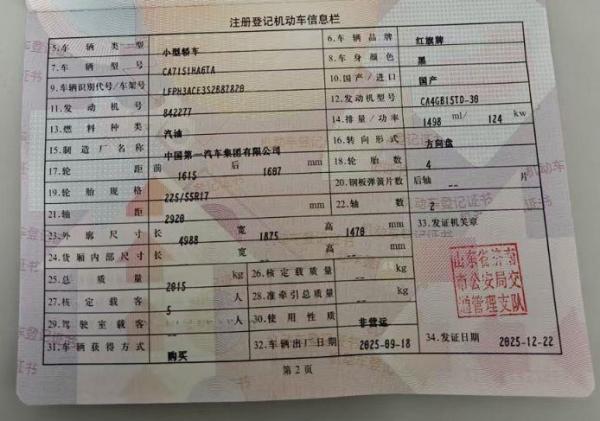 注册登记机动车信息栏
5.车辆类型 小型轿车 6.车辆品牌 红旗牌
7.车辆型号 CA7151HA6TA 8.车身颜色 黑
9.车辆识别代号/车架号 LFPH3ACE3S2B87828 10.国产/进口 国产
11.发动机号 842277 12.发动机型号 CA4GB15TD-30
13.燃料种类 汽油 14.排量/功率 1498 ml/ 124 kw
15.制造厂名称 中国第一汽车集团有限公司 16.转向形式 方向盘
17.轮距 前 1615 后 1607 mm 18.轮胎数 4
19.轮胎规格 225/55R17 20.钢板弹簧片数 后轴 -- 片
21.轴距 2920 mm 22.轴数 2
23.外廓尺寸 长 4988 宽 1875 高 1470 mm 33.发证机关章
24.货厢内部尺寸 长 -- 宽 -- 高 -- mm
25.总质量 2015 kg 26.核定载质量 -- kg
27.核定载客 5 人 28.准牵引总质量 -- kg
29.驾驶室载客 -- 人 30.使用性质 非营运
31.车辆获得方式 购买 32.车辆出厂日期 2025-09-18 34.发证日期 2025-12-22
山东省济南
市公安局交
通管理支队
第2页